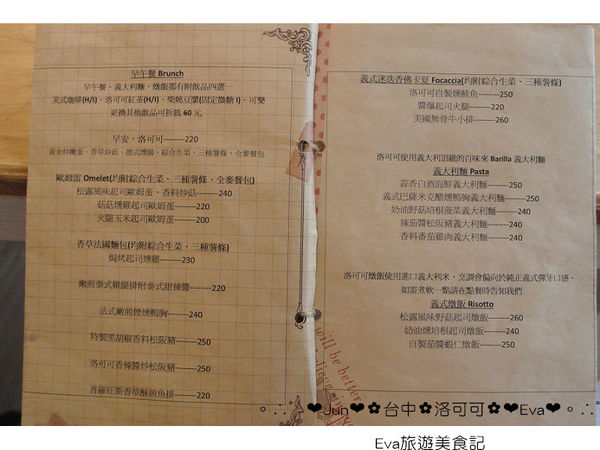 早午餐 Brunch
早午餐、義大利麵、燉飯都有附飲品四選一
美式咖啡(H/I)、洛可可紅茶(H/I)、柴燒豆漿(固定微糖 I)、可樂
更換其他飲品可折抵 60 元
早安，洛可可--------220
黃金炒嫩蛋、香草炒菇、德式燻腸、綜合生菜，三種薯條、全麥餐包
歐姆蕾 Omelet(均附綜合生菜、三種薯條、全麥餐包)
松露風味起司歐姆蛋、香料炒菇-------240
菇菇燻雞起司歐姆蛋--------220
火腿玉米起司歐姆蛋-------200
香草法國麵包(均附綜合生菜、三種薯條)
焗烤起司燻雞-------230
嫩煎泰式雞腿排附泰式甜辣醬--------220
法式嫩煎煙燻鴨胸--------240
特製黑胡椒香料松阪豬--------250
洛可可香辣醬炒松阪豬-------250
普羅旺斯香草酥煎魚排--------220
義式迷迭香佛卡夏 Focaccia(均附綜合生菜、三種薯條)
洛可可自製燻鮭魚--------250
醬爆起司火腿--------220
美國無骨牛小排--------260
洛可可使用義大利頂級的百味來 Barilla 義大利麵
義大利麵 Pasta
蒜香白酒海鮮義大利麵--------250
義式巴薩米克醋燻鴨胸義大利麵--------240
奶油野菇培根菠菜義大利麵--------240
辣茄醬松阪豬義大利麵--------240
香料番茄雞肉義大利麵--------240
洛可可燉飯使用進口義大利米，烹調會偏向於純正義式彈牙口感，
如需煮軟一點請在點餐時告知我們
義式燉飯 Risotto
松露風味野菇起司燉飯--------260
奶油燻培根起司燉飯--------240
自製茄醬蝦仁燉飯--------250
will be better
❤Jun❤✿台中✿洛可可✿❤Eva❤
Eva旅遊美食記